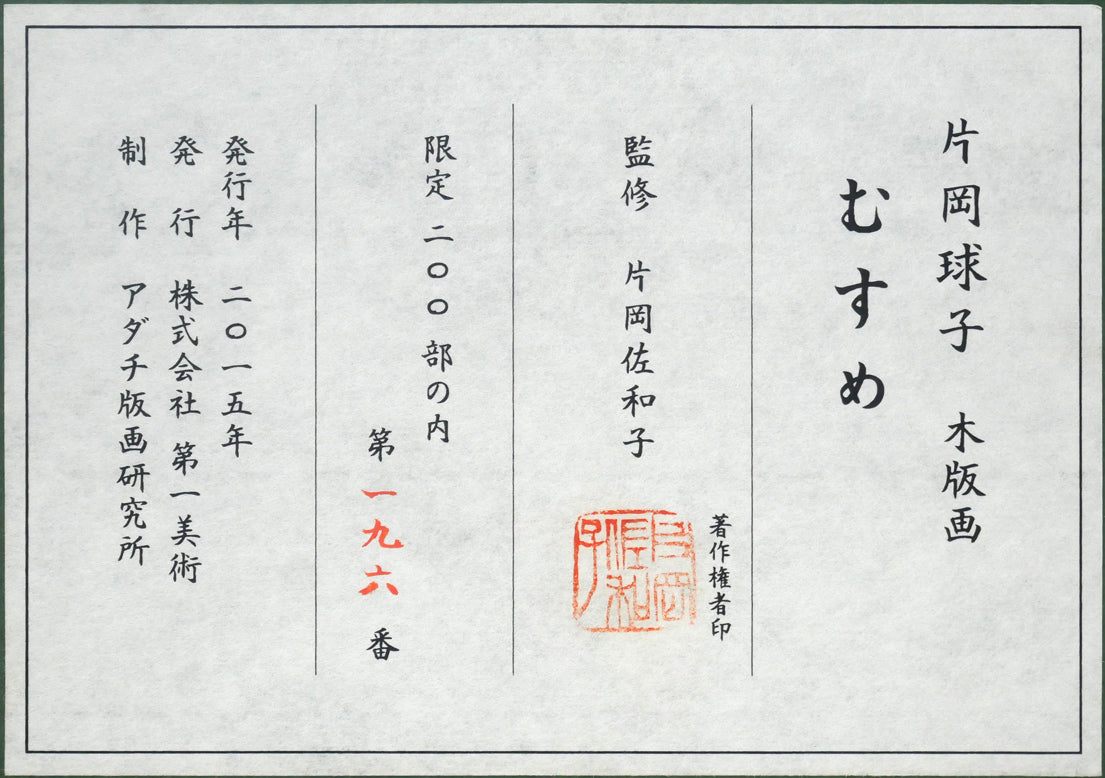 片岡球子 木版画
むすめ
監修 片岡佐和子
著作権者印
片岡
佐和
子
限定 二〇〇部の内
第一九六番
発行年 二〇一五年
発行 株式会社 第一美術
制作 アダチ版画研究所